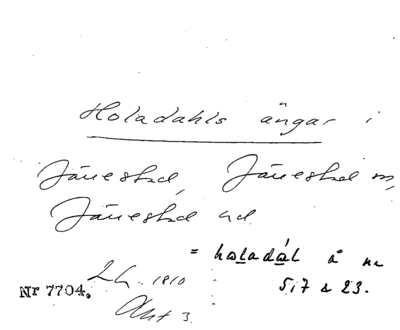 Holadahls ängar i
Järestad, Järestad sn,
Järestad hd.
= holadál å nr
5, 7 & 23.
Lh. 1810
Nr 7704.
Akt 3